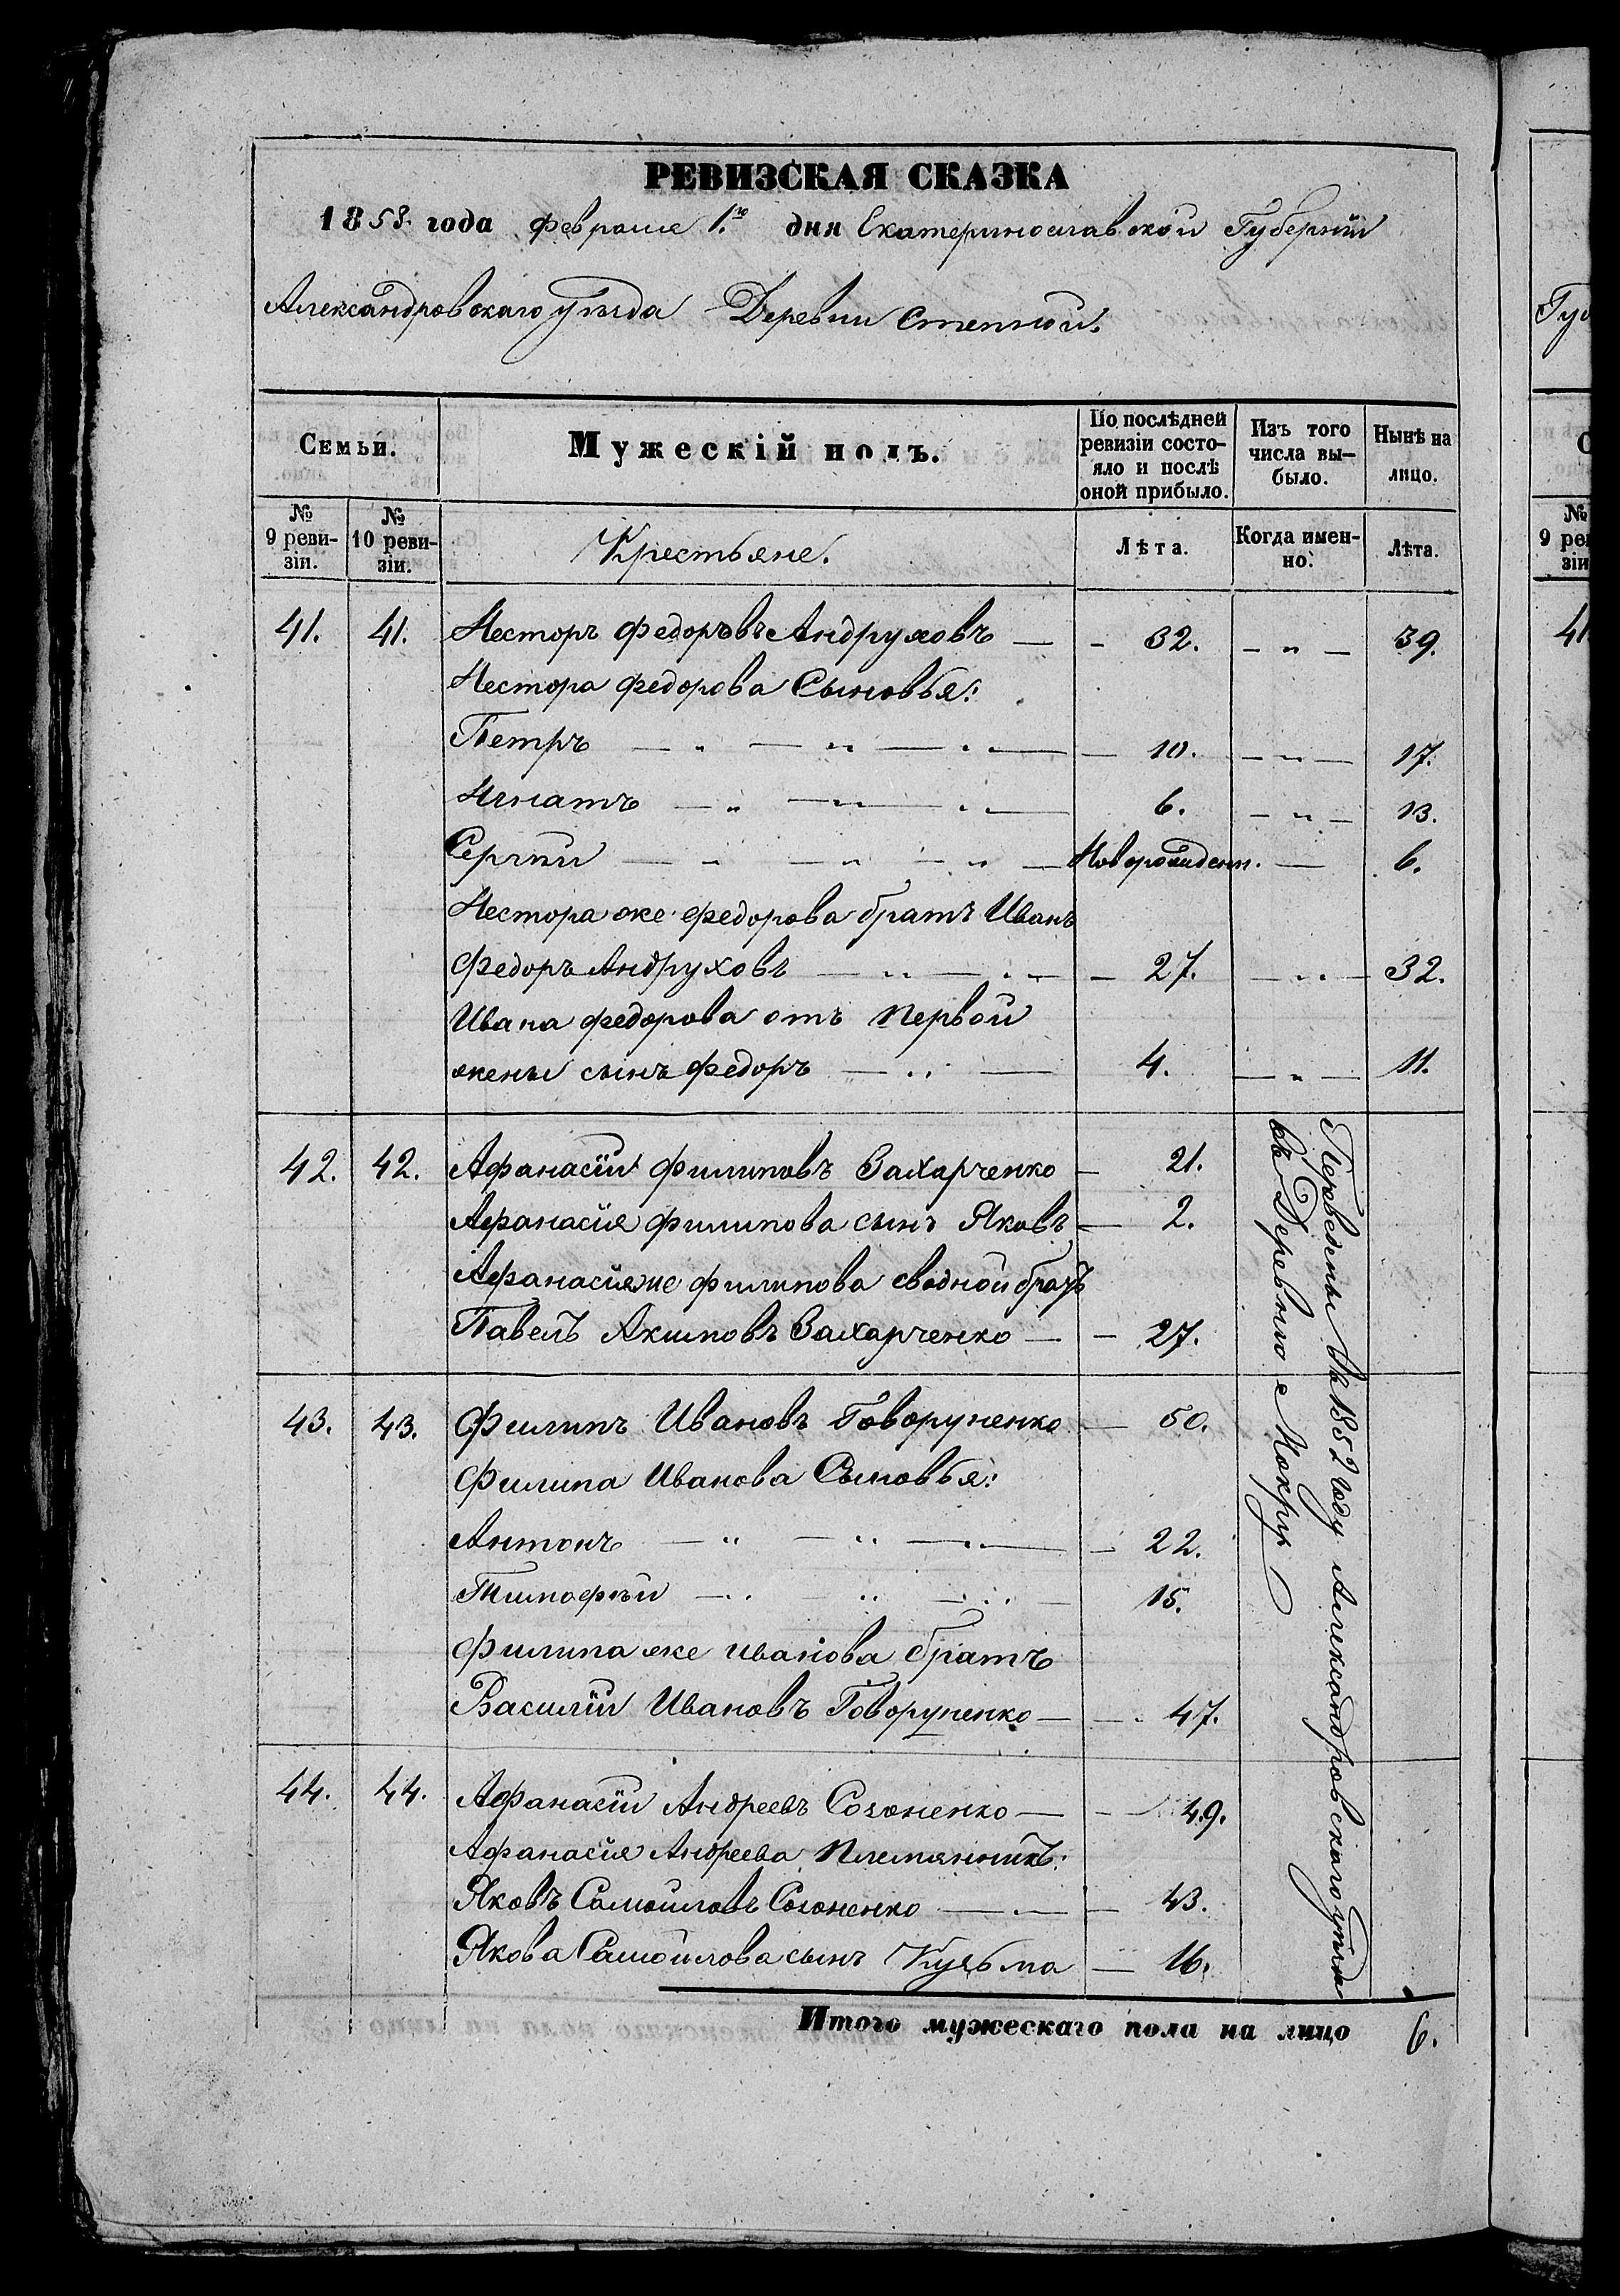 РЕВИЗСКАЯ СКАЗКА
1858. года февраля 1.го дня Екатеринославской Губерніи
Александровскаго уѣзда Деревни Степной.
Семьи.
Мужескій полъ.
По послѣдней ревизіи состо-яло и послѣ оной прибыло.
Изъ того числа вы-было.
Нынѣ на лицо.
№ 9 реви-зіи.
№ 10 реви-зіи.
Крестьяне.
Лѣта.
Когда имен-но.
Лѣта.
41. 41. Несторъ Федоровъ Андруховъ — - 32. - " - 39.
Нестора Федорова Сыновья:
Петръ — " — " — " — 10. — " — 17.
Игнатъ — " — " — " — 6. — " — 13.
Сергѣй — " — " — " — Новорожденн. — 6.
Нестора же Федорова братъ Иванъ
Федоръ Андруховъ — " — " — 27. — " — 32.
Ивана Федорова отъ первой
жены сынъ Федоръ — " — 4. — " — 11.
42. 42. Афанасій Филиповъ Захарченко — 21.
Афанасія Филипова сынъ Яковъ — 2.
Афанасія же Филипова сводной братъ
Павелъ Акимовъ Захарченко — — 27.
43. 43. Филипъ Ивановъ Говоруненко — 50.
Филипа Иванова Сыновья:
Антонъ — " — " — " — 22.
Тимофѣй — " — " — " — 15.
Филипа же Иванова братъ
Василій Ивановъ Говоруненко — — 47.
44. 44. Афанасій Андреевъ Согоненко — - 49.
Афанасія Андреева Племянникъ:
Яковъ Самойловъ Согоненко — " — 43.
Якова Самойлова сынъ Кузьма — 16.
Переведены въ 1852 году Александровскаго уѣзда
въ Деревню
Итого мужескаго пола на лицо 6.
Гу
С
№
9 ре
зіи
41